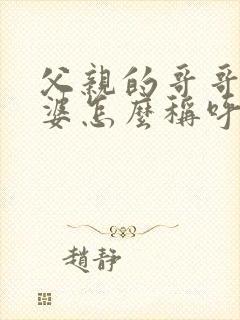 父親的哥哥
婆怎麼稱呼
趙靜